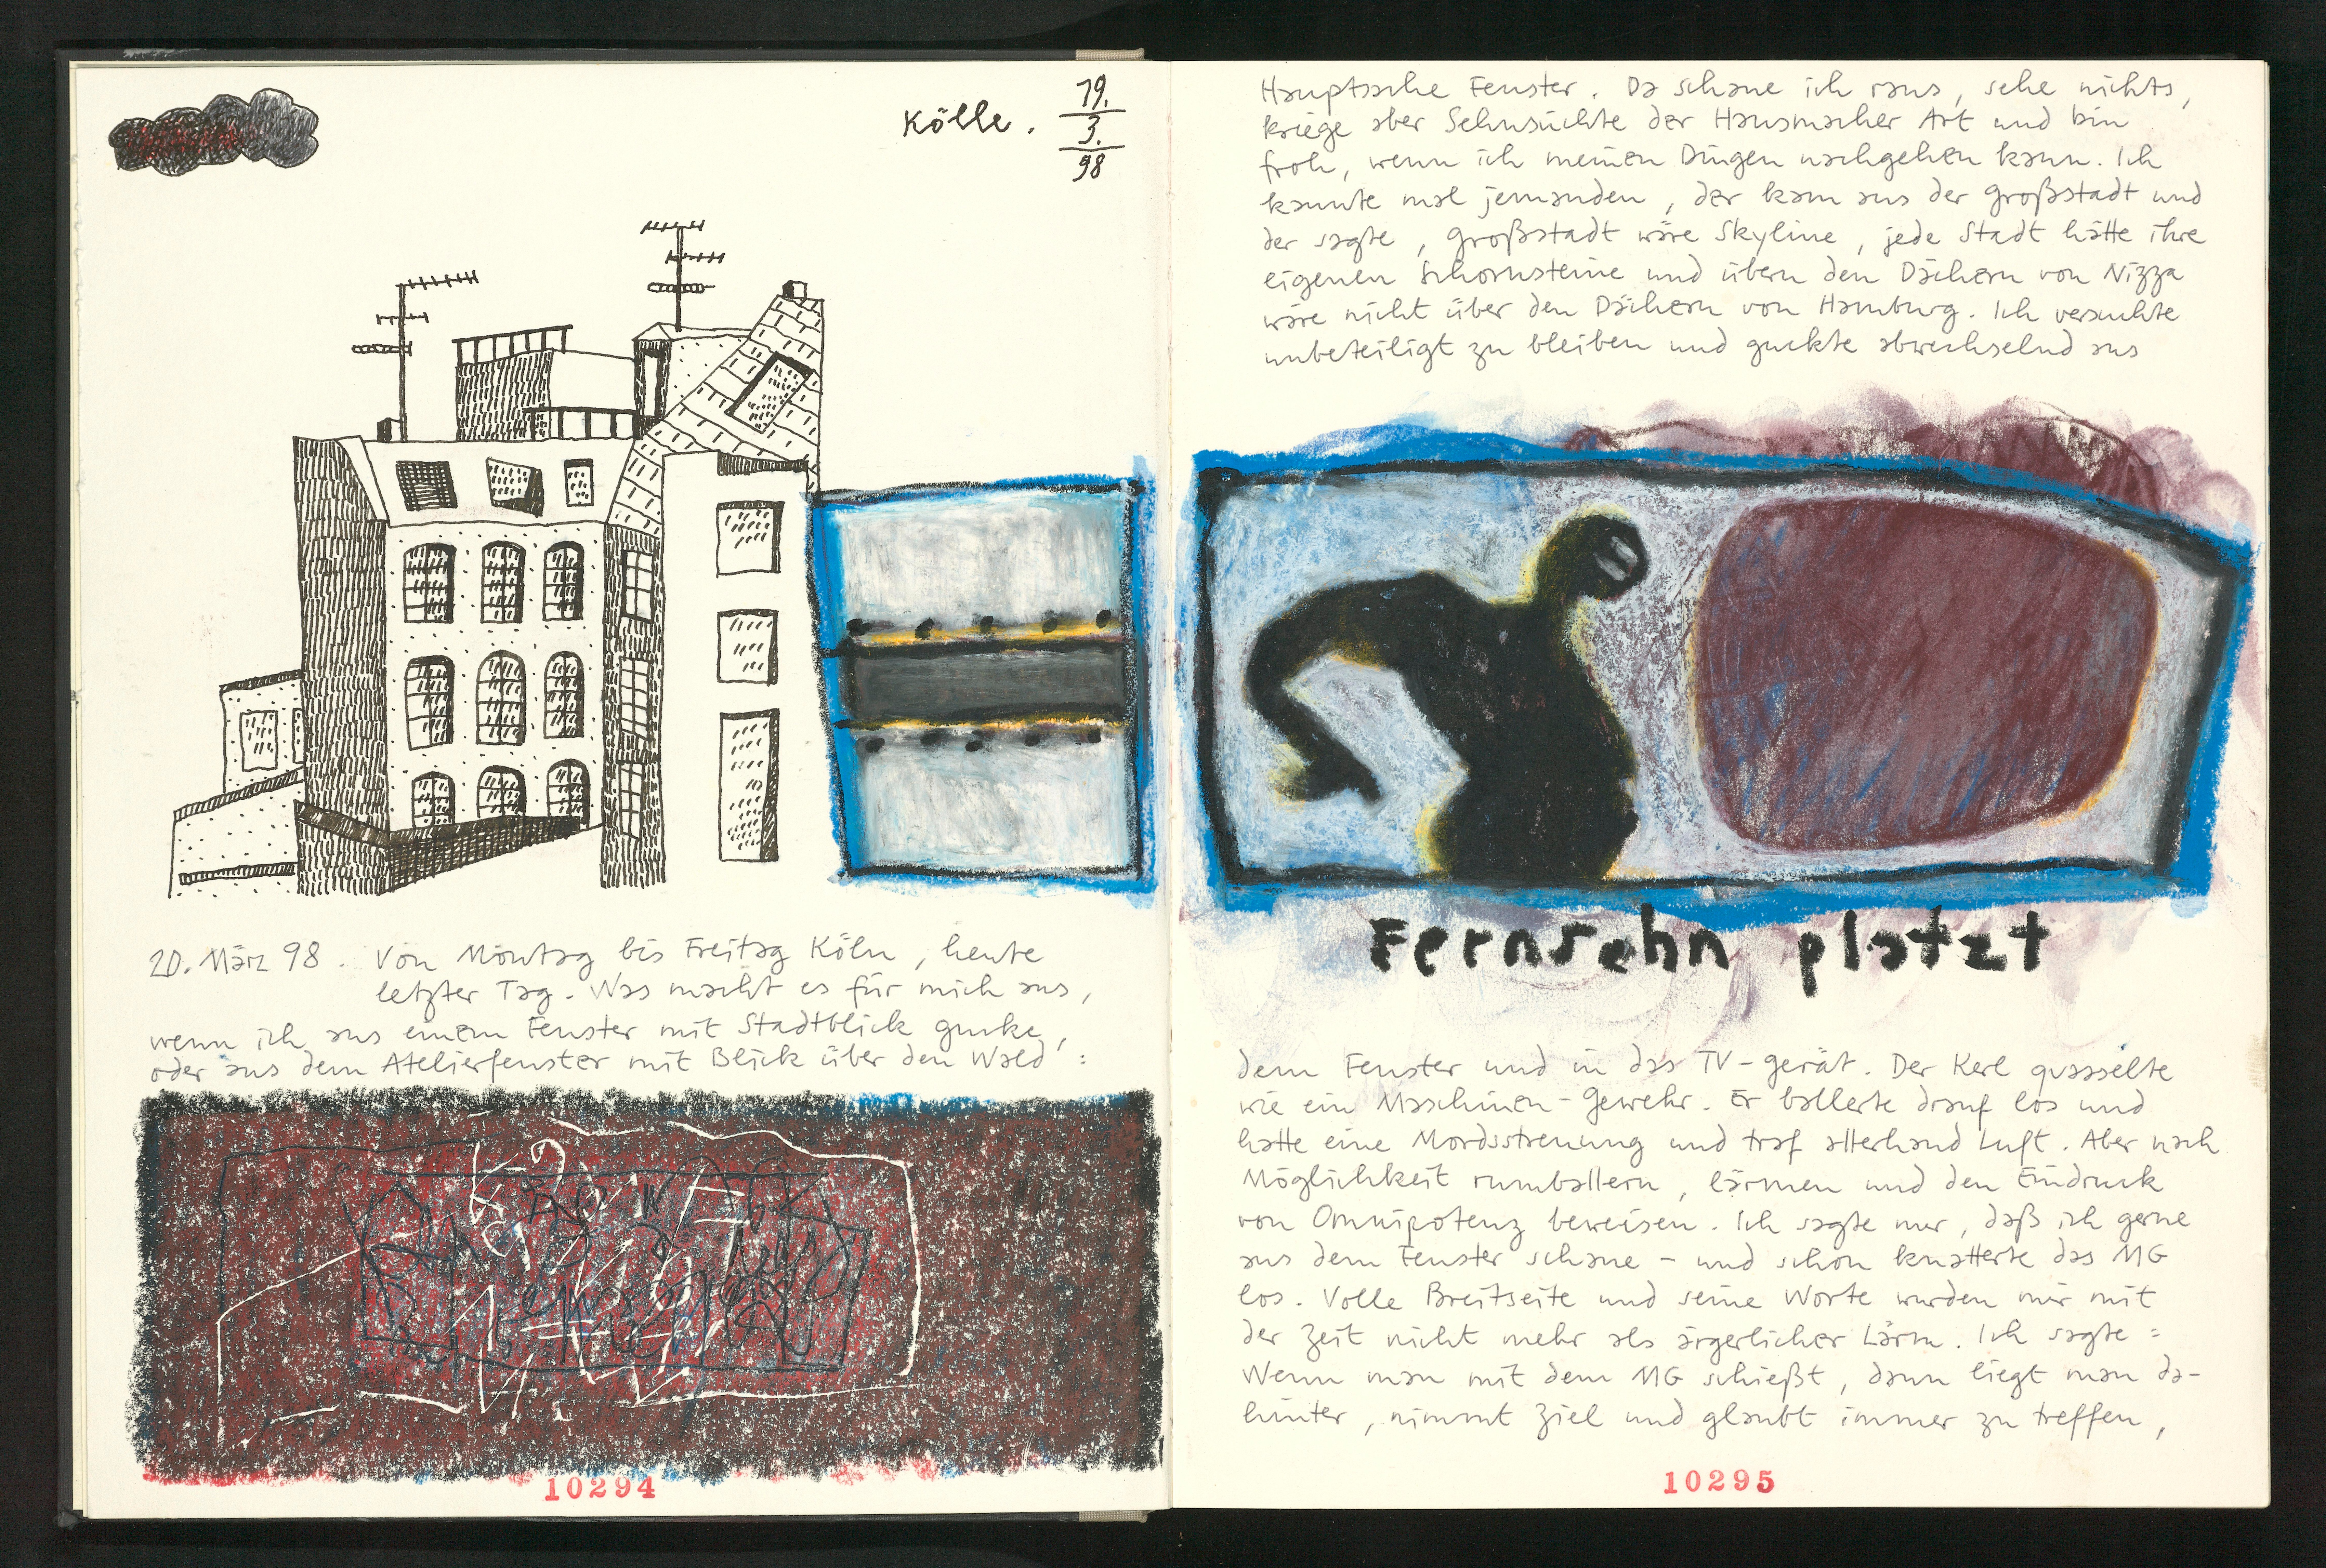 Kölle. 19.
3.
98
20. März 98. Von Montag bis Freitag Köln, heute
letzter Tag. Was macht es für mich aus,
wenn ich aus einem Fenster mit Stadtblick gucke,
oder aus dem Atelierfenster mit Blick über den Wald:
10294
Hauptsache Fenster. Da schaue ich raus, sehe nichts,
kriege aber Sehnsüchte der Hausmacher Art und bin
froh, wenn ich meinen Dingen nachgehen kann. Ich
kannte mal jemanden, der kam aus der Großstadt und
der sagte, Großstadt wäre Skyline, jede Stadt hätte ihre
eigenen Schornsteine und übern den Dächern von Nizza
wäre nicht über den Dächern von Hamburg. Ich versuchte
unbeteiligt zu bleiben und guckte abwechselnd aus
Fernsehn platzt
dem Fenster und in das TV-gerät. Der Kerl quasselte
wie ein Maschinen-Gewehr. Er ballerte drauf los und
hatte eine Mordsstreuung und traf allerhand Luft. Aber nach
Möglichkeit rumballern, lärmen und den Eindruck
von Omnipotenz beweisen. Ich sagte nur, daß ich gerne
aus dem Fenster schaue - und schon knatterte das MG
los. Volle Breitseite und seine Worte wurden mir mit
der Zeit nicht mehr als ärgerlicher Lärm. Ich sagte:
Wenn man mit dem MG schießt, dann liegt man da-
hinter, nimmt Ziel und glaubt immer zu treffen,
10295